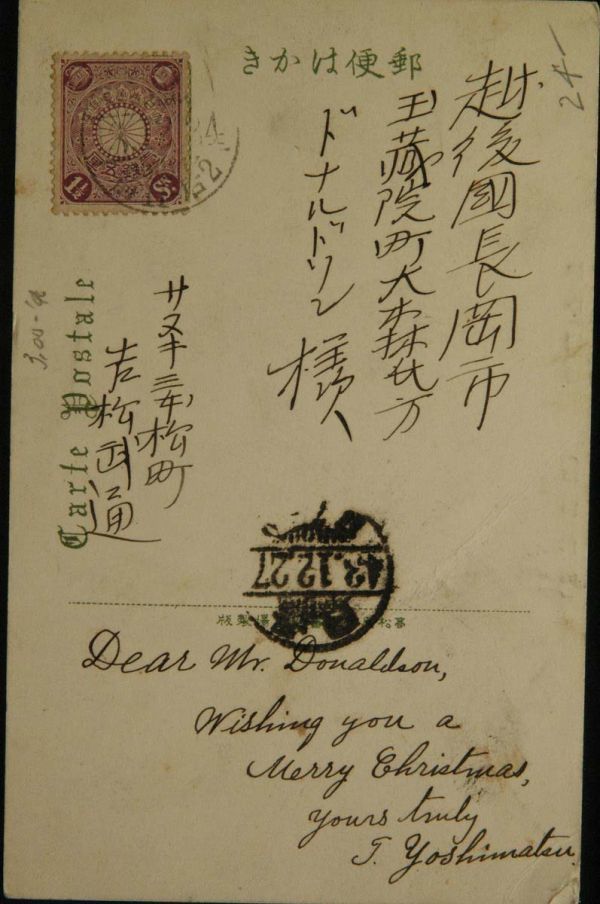 郵便はかき
越後國長岡市
玉蔵院町大森氏方
ドナルドソン様
サヌキ 三本松町
吉松武通
Carte Postale
1½ Sn
43.12.27
高松
製版
Dear Mr. Donaldson,
Wishing you a
Merry Christmas,
yours truly
T. Yoshimatsu.